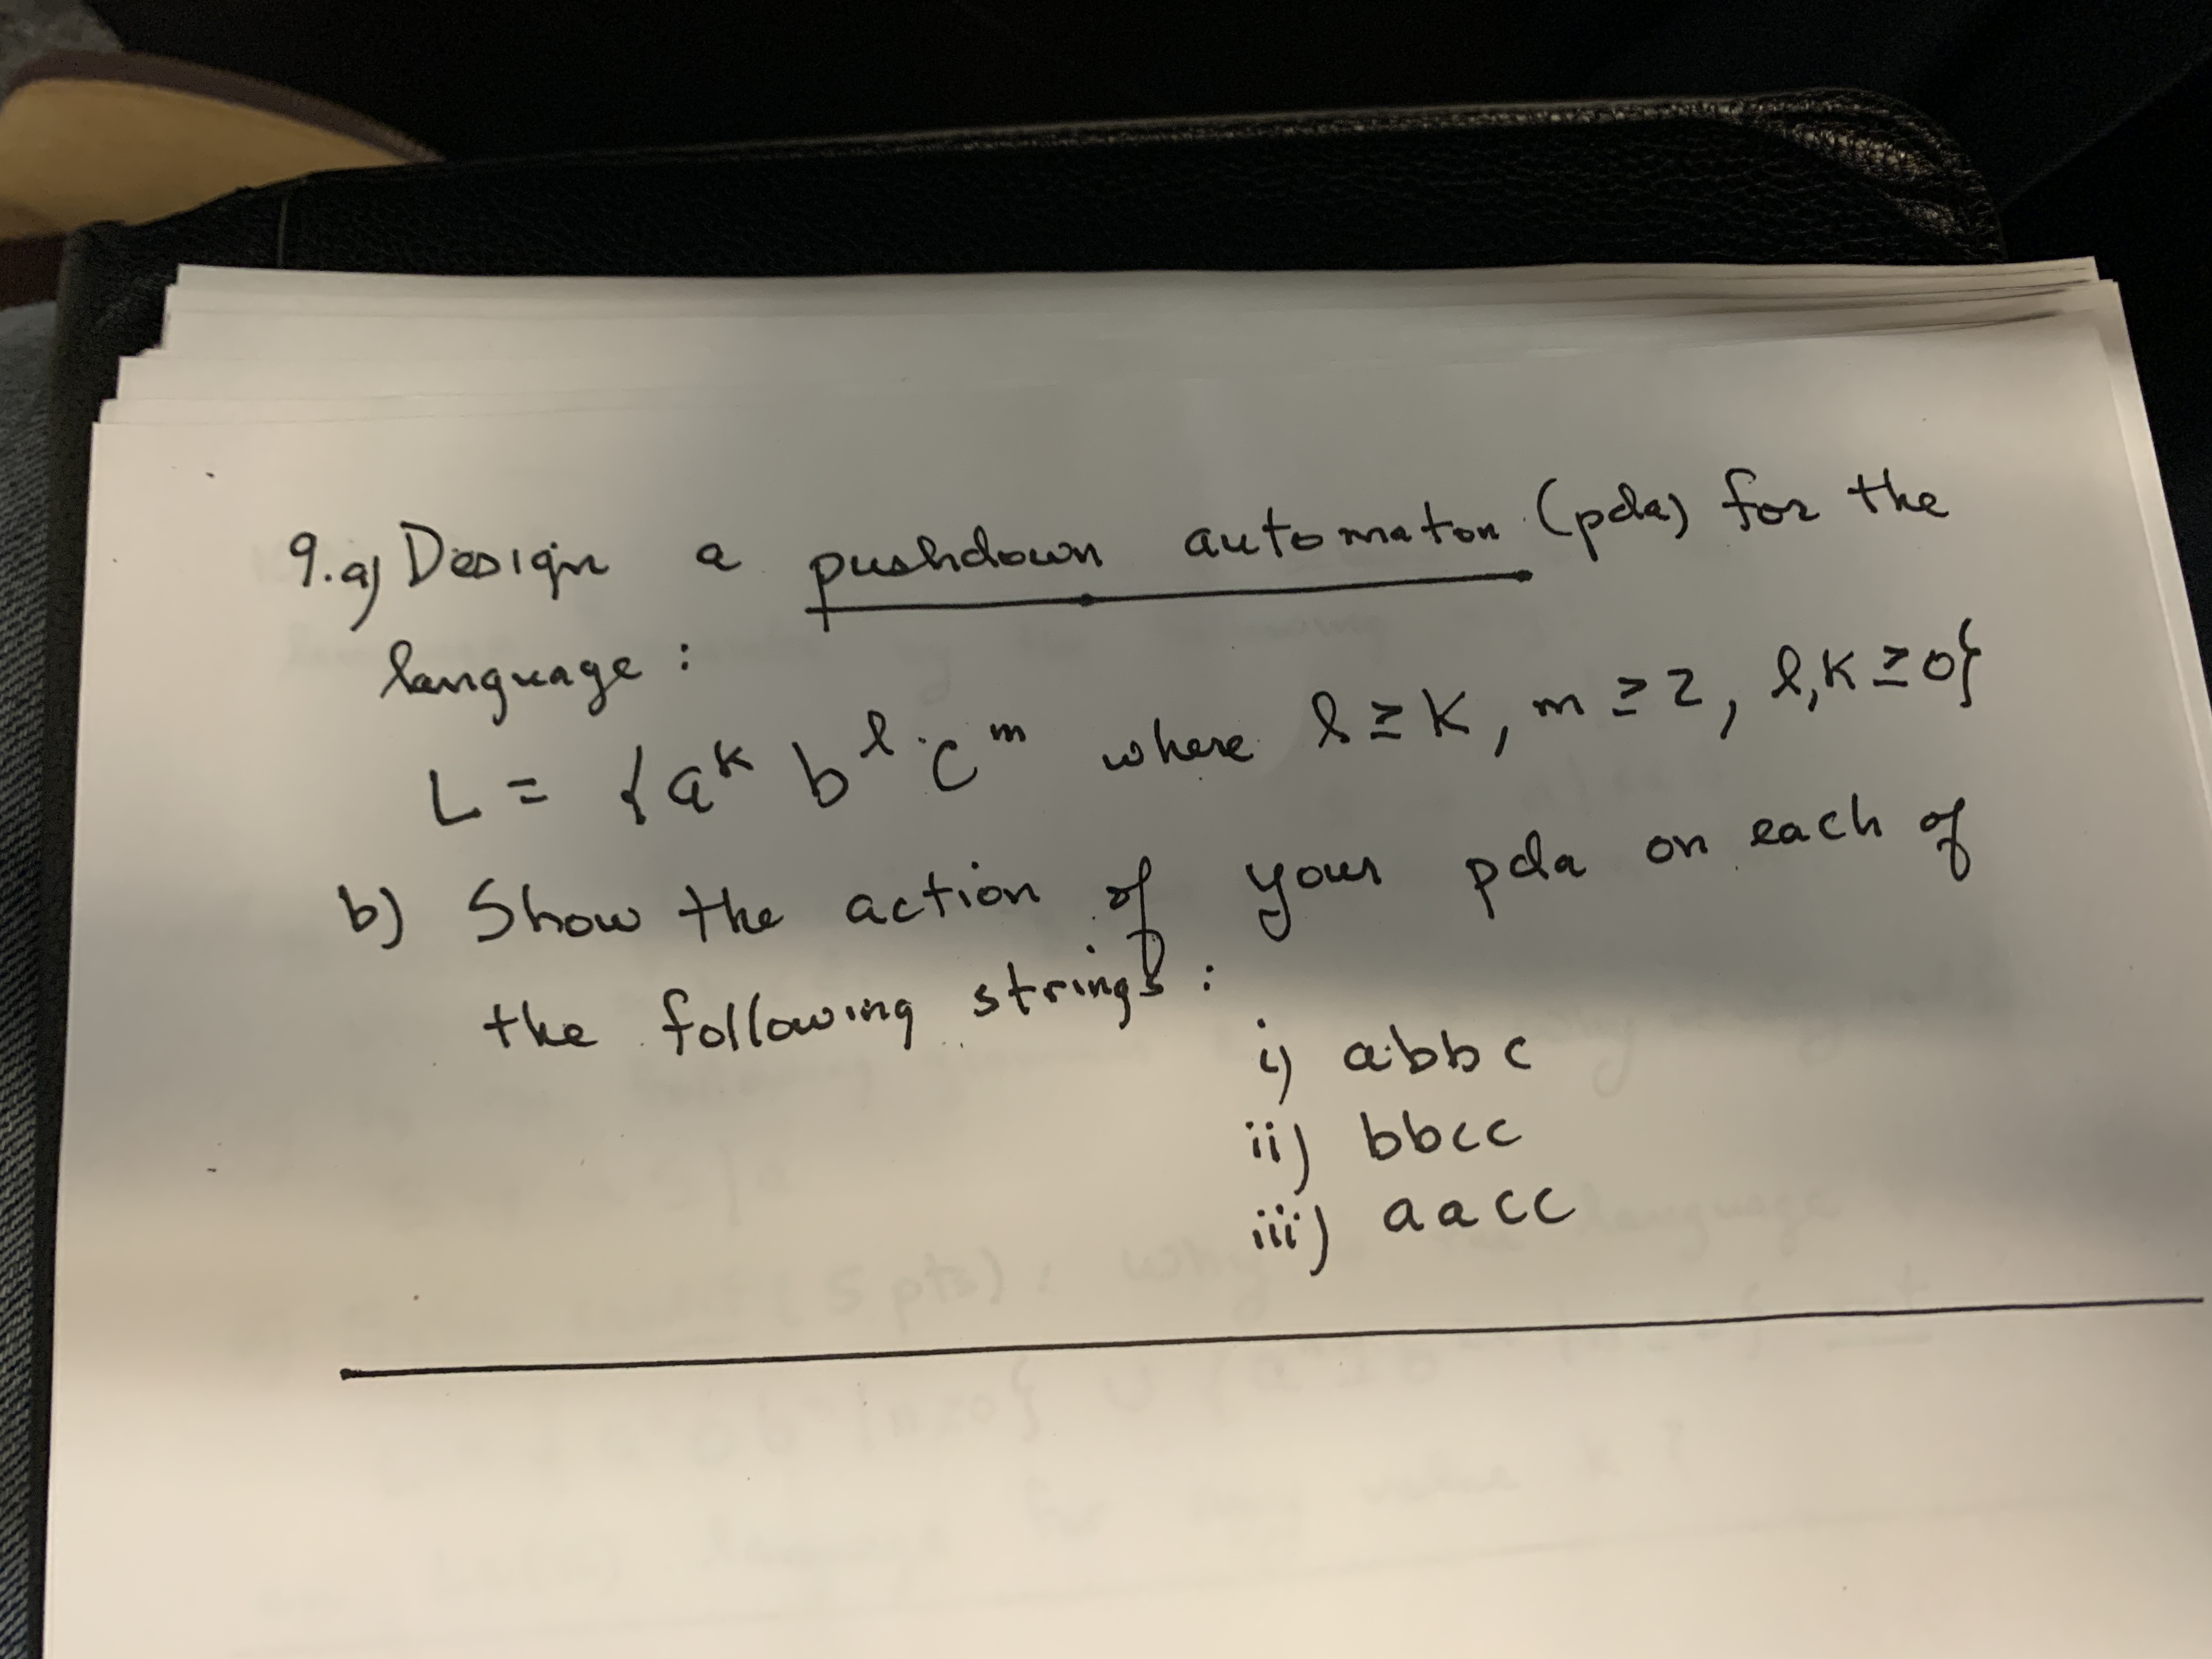 9.a) Design a pushdown automaton (pda) for the
language :
L = { a^k b^l c^m where l ≥ k, m ≥ 2, l,k ≥ 0}
b) Show the action of your pda on each of
the following strings :
i) abbc
ii) bbcc
iii) aacc